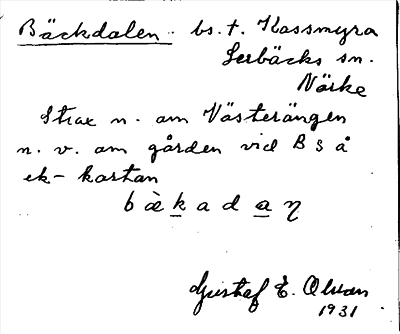 Bäckdalen bs. t. Kassmyra
Lerbäcks sn.
Närke
Strax n. om Västerängen
n. v. om gården vid B 3 å
ek-kartan
b ä̀ k a d a η
Gustaf E. Olsson
1931